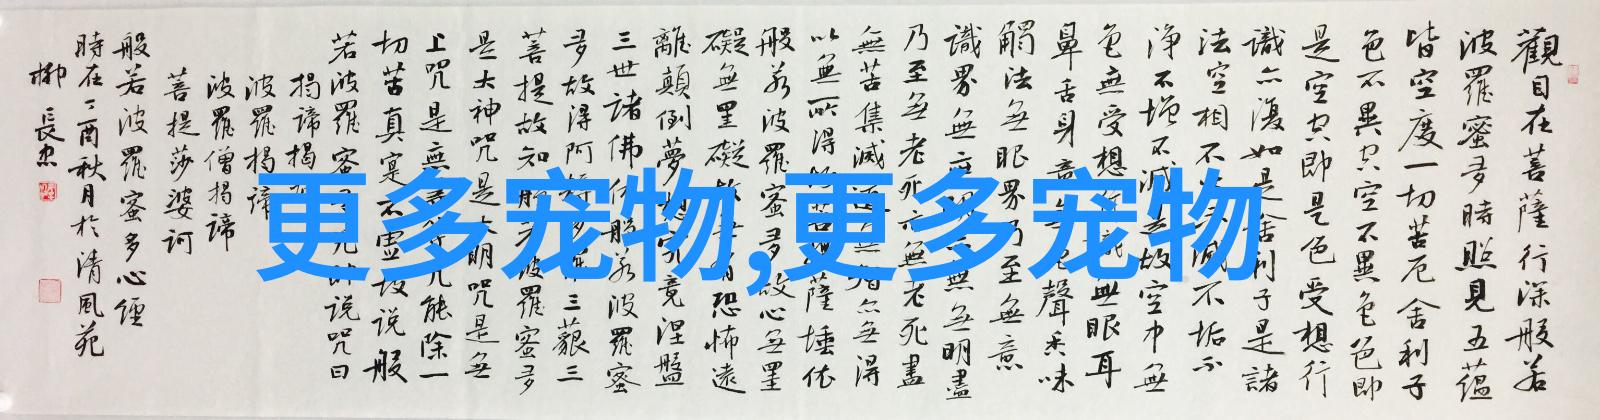 觀自在菩薩行深般若
波羅蜜多時照見五蘊
皆空度一切苦厄舍利子
色不異空空不異色色即
是空空即是色受想行
識亦復如是舍利子是諸
法空相不生不滅不垢不
淨不增不減是故空中無
色無受想行識無眼耳
鼻舌身意無色聲香味
觸法無眼界乃至無意
識界無無明亦無無明盡
乃至無老死亦無老死盡
無苦集滅道無智亦無得
以無所得故菩提薩埵依
般若波羅蜜多故心無罣
礙無罣礙故無有恐怖遠
離顛倒夢想究竟涅盤
三世諸佛依般若波羅蜜
多故得阿耨多羅三藐三
菩提故知般若波羅蜜多
是大神咒是大明咒是無
上咒是無等等咒能除一
切苦真實不虛故說般
若波羅蜜多咒即說咒曰
揭諦揭諦
波羅揭諦
波羅僧揭諦
菩提莎婆訶
般若波羅蜜多心經
時在丁酉秋月於清風苑
柳長忠
更多宠物,更多宠物